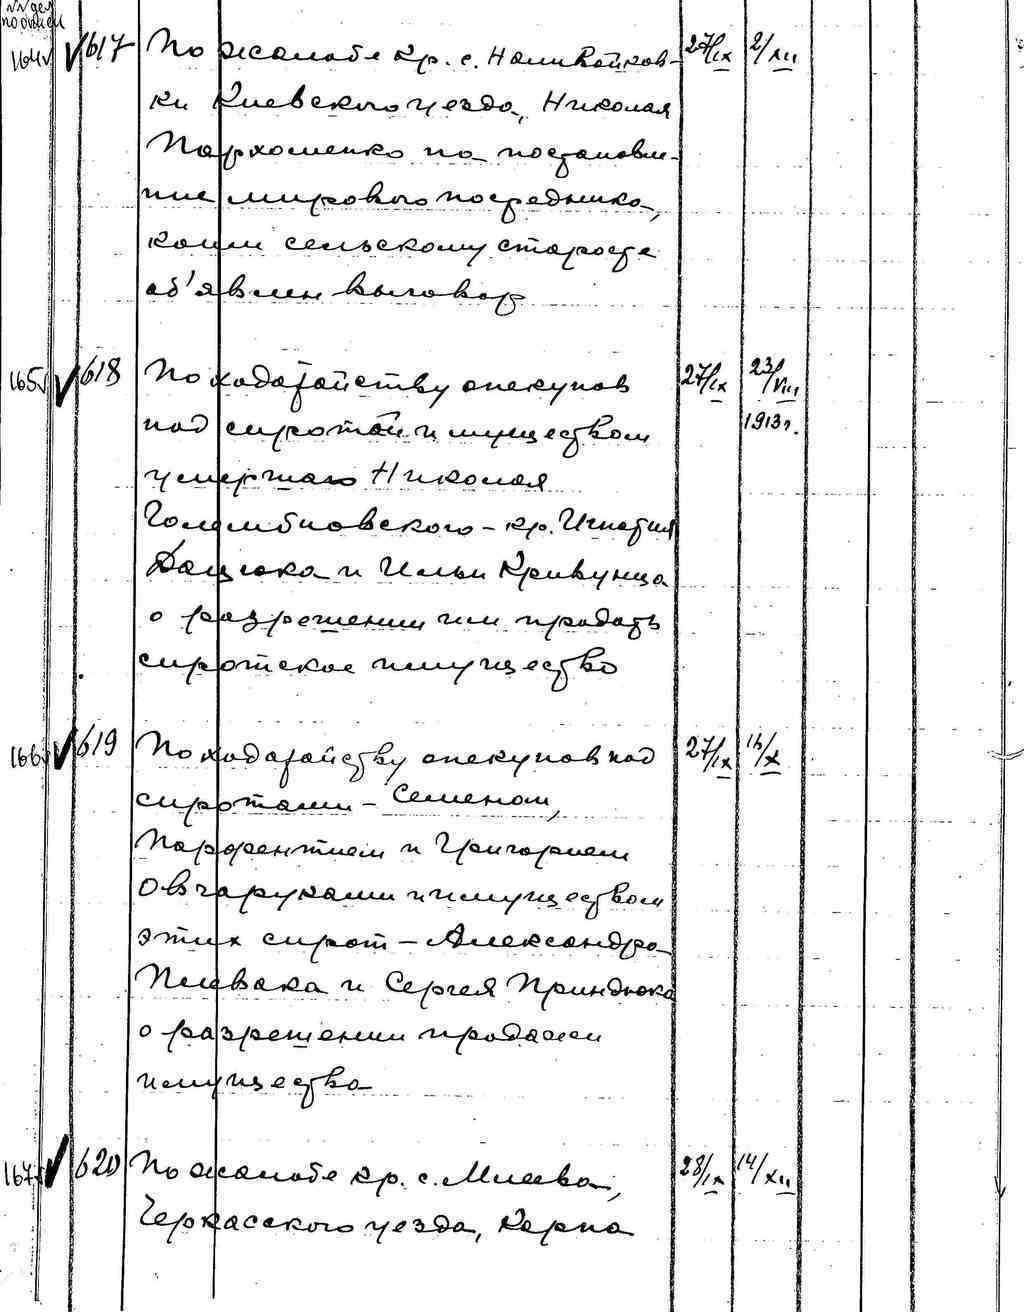 №№ дел
по описи
164 617 По жалобе кр. с. Наливайков- 27/IX 2/XII
ки Киевского уезда, Николая
Пархоменко на постановле-
ние мирового посредника,
коим сельскому старосте
об'явлен выговор
165 618 По ходатайству опекунов 27/IX 23/VIII
над сиротой и имуществом 1913 г.
умершаго Николая
Голембиовского - кр. Игнатия
Дацюка и Ильи Кривунца
о разрешении им продать
сиротское имущество
166 619 По ходатайству опекунов над 27/IX 16/X
сиротами - Семеном,
Парфентием и Григорием
Овчаруками и имуществом
этих сирот - Александра
Плевака и Сергея Приндюка
о разрешении продажи
имущества
167 620 По жалобе кр. с. Млеева, 28/IX 14/XII
Черкасского уезда, Карпа